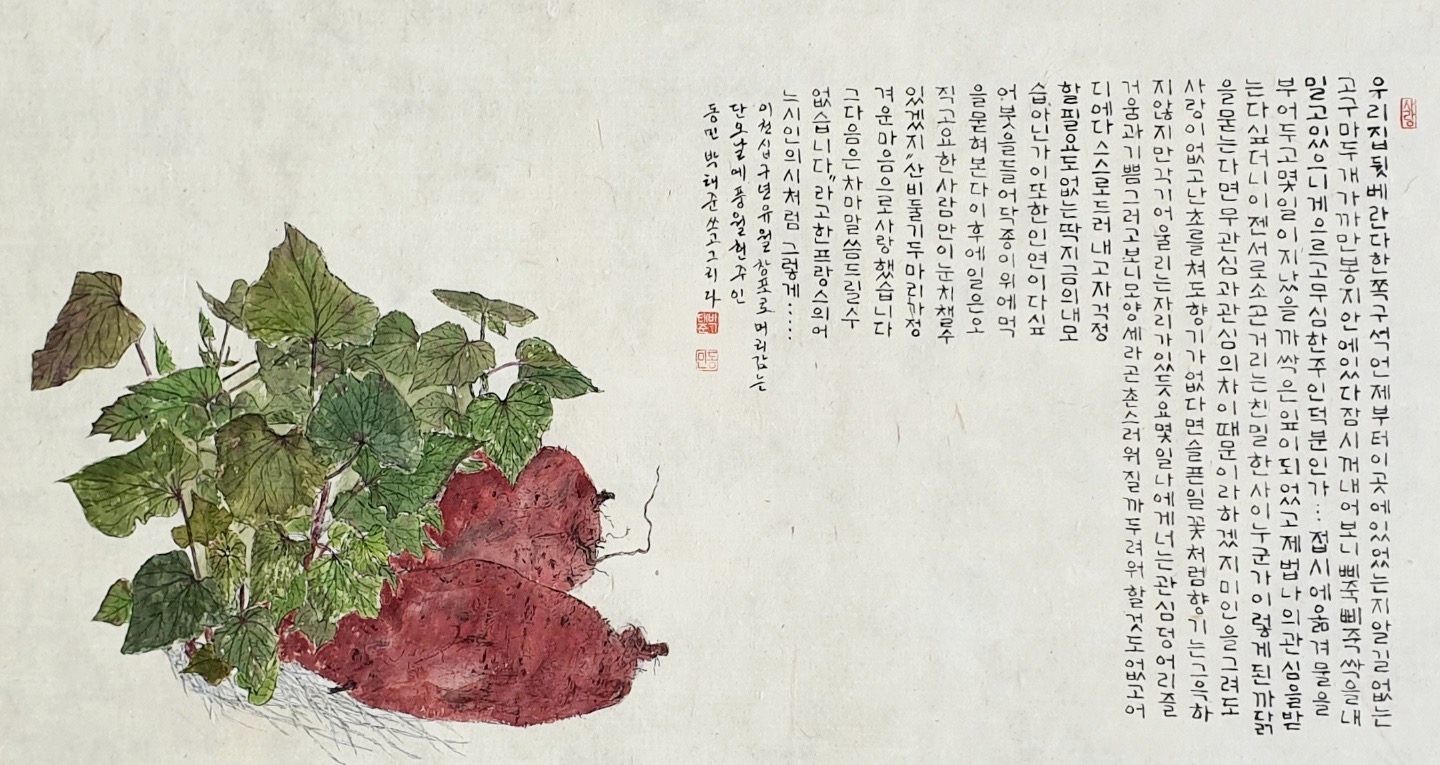 사랑
우리집 뒷베란다 한쪽 구석 언제부터 이곳에 있었는지 알길 없는
고구마 두개가 까만 봉지안에 있다 잠시 꺼내어 보니 삐죽삐죽 싹을 내
밀고 있으니 게으르고 무심한 주인 덕분인가… 접시에 옮겨 물을
부어두고 몇일이 지났을까 싹은 잎이 되었고 제법 나의 관심을 받
는다 싶더니 이젠 서로 소곤거리는 친밀한 사이 누군가 이렇게 된 까닭
을 묻는다면 무관심과 관심의 차이 때문이라 하겠지 미인을 그려도
사랑이 없고 난초를 쳐도 향기가 없다면 슬픈일 꽃처럼 향기는 그윽하
지 않지만 각기 어울리는 자리가 있듯 요 몇일 나에게 너는 관심덩어리 즐
거움과 기쁨 그러고 보니 모양세라곤 촌스러워질까 두려워 할것도 없고 어
디에다 스스로 드러내고자 걱정
할 필요도 없는 딱 지금의 내모
습 아닌가 이또한 인연이다 싶
어 붓을 들어 닥종이 위에 먹
을 묻혀 본다 이후에 일은 오
직 고요한 사람만이 눈치챌 수
있겠지 "산비둘기 두마리가 정
겨운 마음으로 사랑했습니다
그 다음은 차마 말씀드릴 수
없습니다"라고 한 프랑스의 어
느 시인의 시처럼 그렇게……
이천십구년 유월 창포로 머리감는
단오날에 풍월헌주인
동민 박태준 쓰고 그리다
박태준
동민